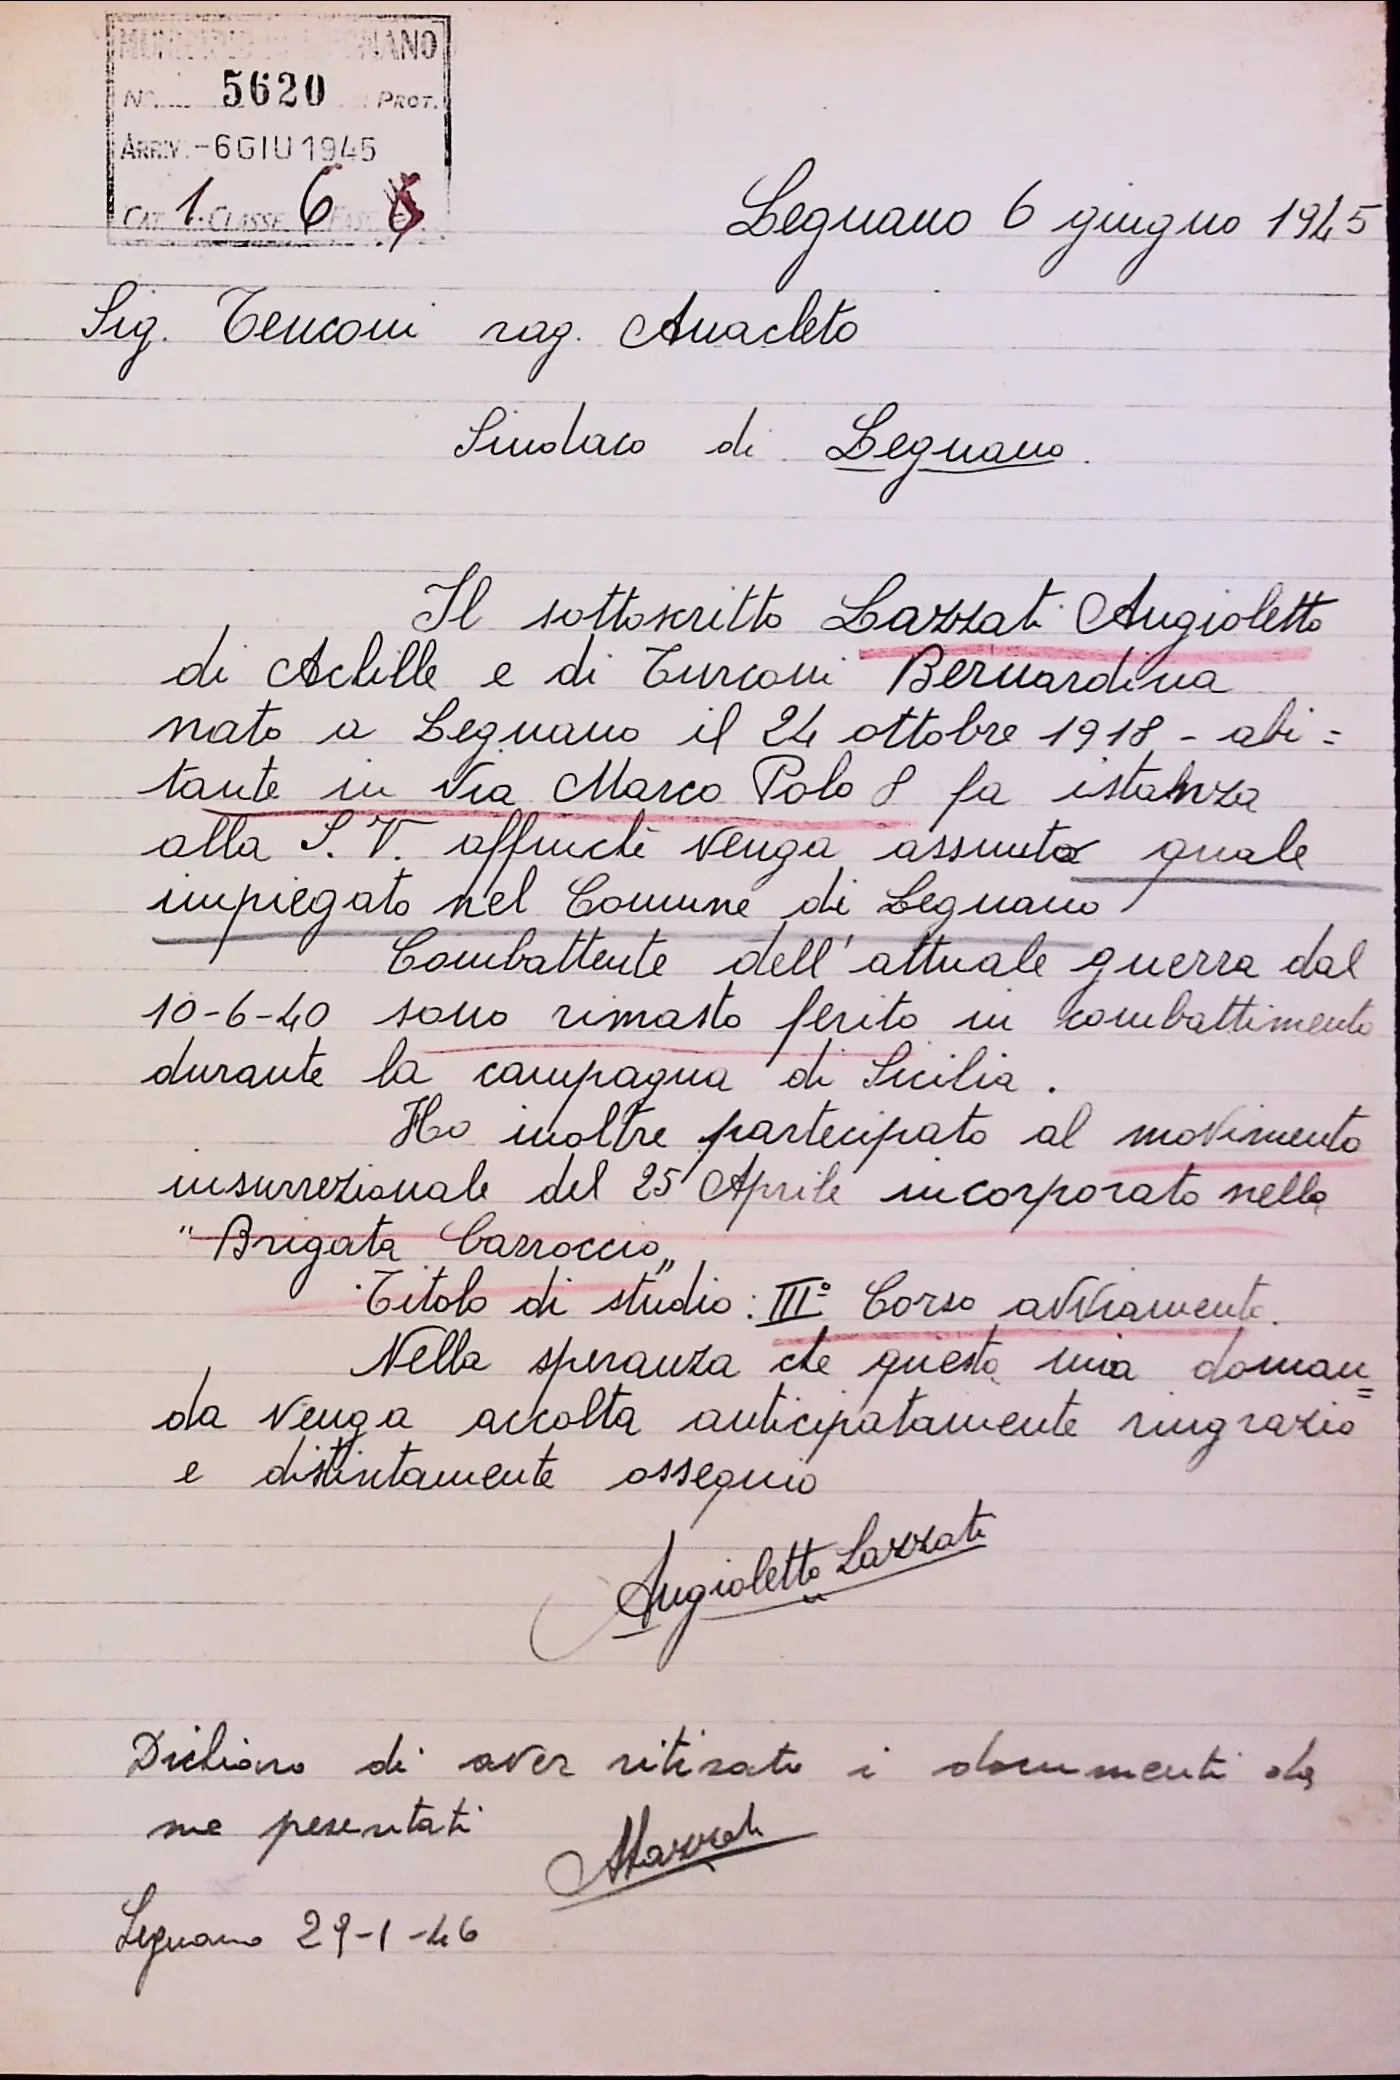 MUNICIPIO DI LEGNANO
N. 5620 PROT.
ARRIV. -6 GIU 1945
CAT. 1. CLASSE. 6 FASC.
Legnano 6 giugno 1945
Sig. Tenconi rag. Anacleto
Sindaco di Legnano.
Il sottoscritto Lazzati Angioletto
di Achille e di Turconi Bernardina
nato a Legnano il 24 ottobre 1918 - abi=
tante in Via Marco Polo 8 fa istanza
alla S. V. affinchè venga assunto quale
impiegato nel Comune di Legnano
Combattente dell'attuale guerra dal
10-6-40 sono rimasto ferito in combattimento
durante la campagna di Sicilia.
Ho inoltre partecipato al movimento
insurrezionale del 25 Aprile incorporato nella
"Brigata Carroccio„
Titolo di studio: III° Corso avviamento.
Nella speranza che questa mia doman=
da venga accolta anticipatamente ringrazio
e distintamente ossequio
Angioletto Lazzati
Dichiaro di aver ritirato i documenti da
me pesentati
ALazzati
Legnano 29-1-46